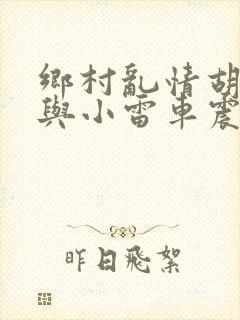 鄉村亂情胡
與小雷車震
昨日飛絮